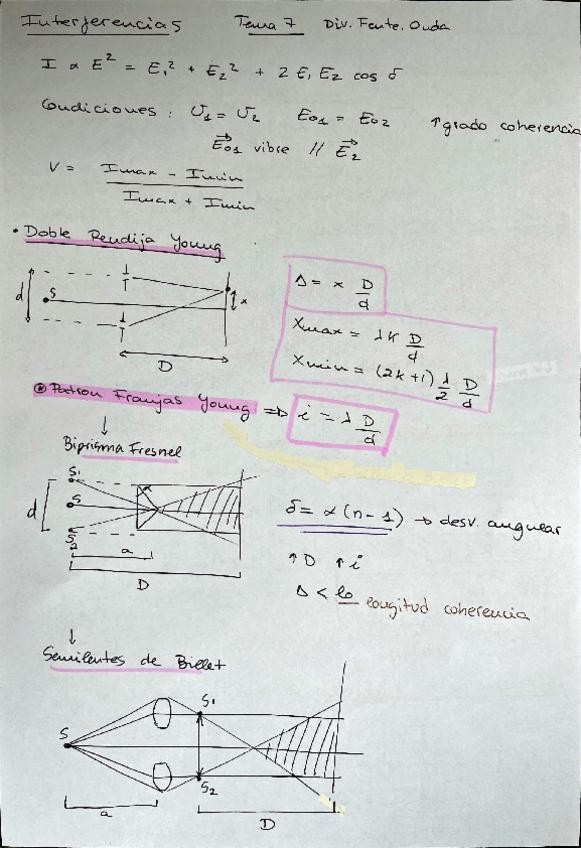 Interferencias Tema 7 Div. Fente. Onda
I ∝ E² = E₁² + E₂² + 2 E₁ E₂ cos δ
Condiciones : ν₁ = ν₂ E₀₁ = E₀₂ ↑grado coherencia
E⃗₀₁ vibre // E⃗₂
V = (Imax - Imin) / (Imax + Imin)
• Doble Rendija Young
d S x D
Δ = x D/d
Xmax = λk D/d
Xmin = (2k+1) λ/2 D/d
⊛ Patron Franjas Young ⇒ i = λ D/d
↓
Biprisma Fresnel
S₁ α
d S
S₂ a
D
δ = α (n - 1) → desv. angular
↑D ↑i
Δ < lo longitud coherencia
↓
Semilentes de Billet
S S₁
S₂
a D